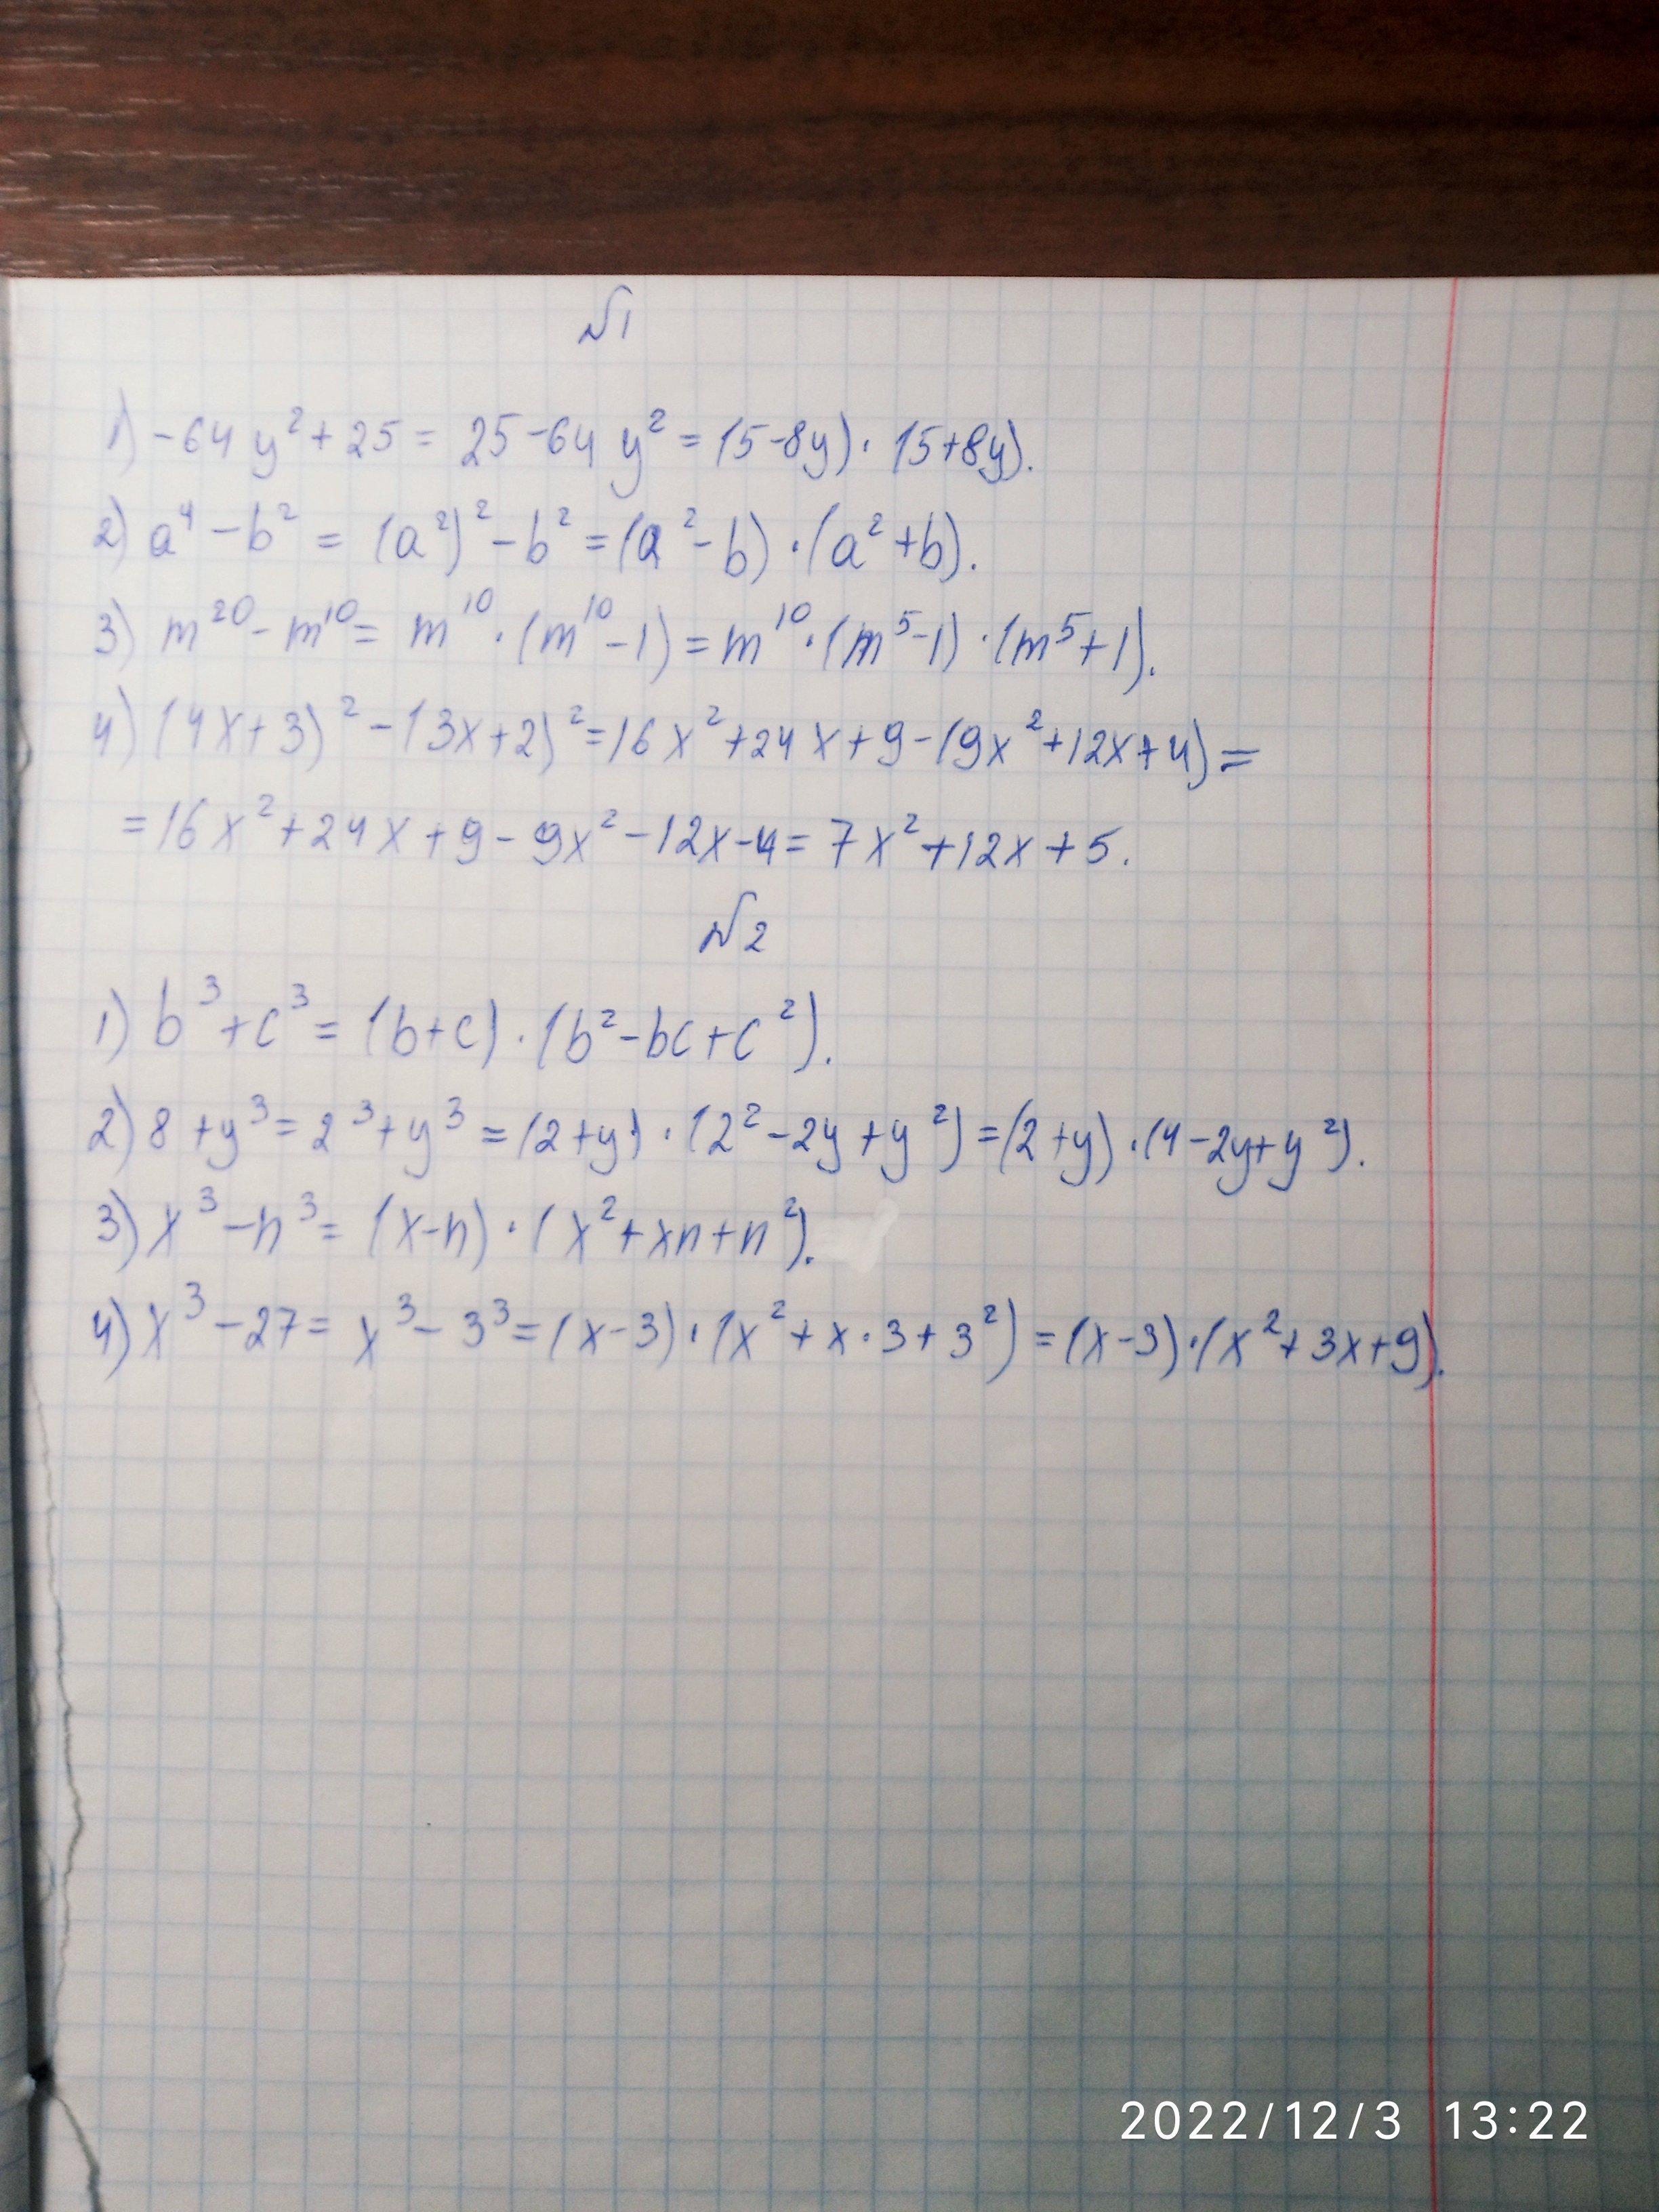 №1
1) -64y²+25 = 25-64y² = (5-8y)·(5+8y).
2) a⁴-b² = (a²)²-b² = (a²-b)·(a²+b).
3) m²⁰-m¹⁰ = m¹⁰·(m¹⁰-1) = m¹⁰·(m⁵-1)·(m⁵+1).
4) (4x+3)²-(3x+2)² = 16x²+24x+9-(9x²+12x+4) =
= 16x²+24x+9-9x²-12x-4 = 7x²+12x+5.
№2
1) b³+c³ = (b+c)·(b²-bc+c²).
2) 8+y³ = 2³+y³ = (2+y)·(2²-2y+y²) = (2+y)·(4-2y+y²).
3) x³-n³ = (x-n)·(x²+xn+n²).
4) x³-27 = x³-3³ = (x-3)·(x²+x·3+3²) = (x-3)·(x²+3x+9).
2022/12/3 13:22